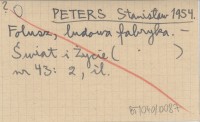 PETERS Stanisław 1954.
Folusz, ludowa fabryka. –
Świat i Życie ( . )
nr 43: 2, il.